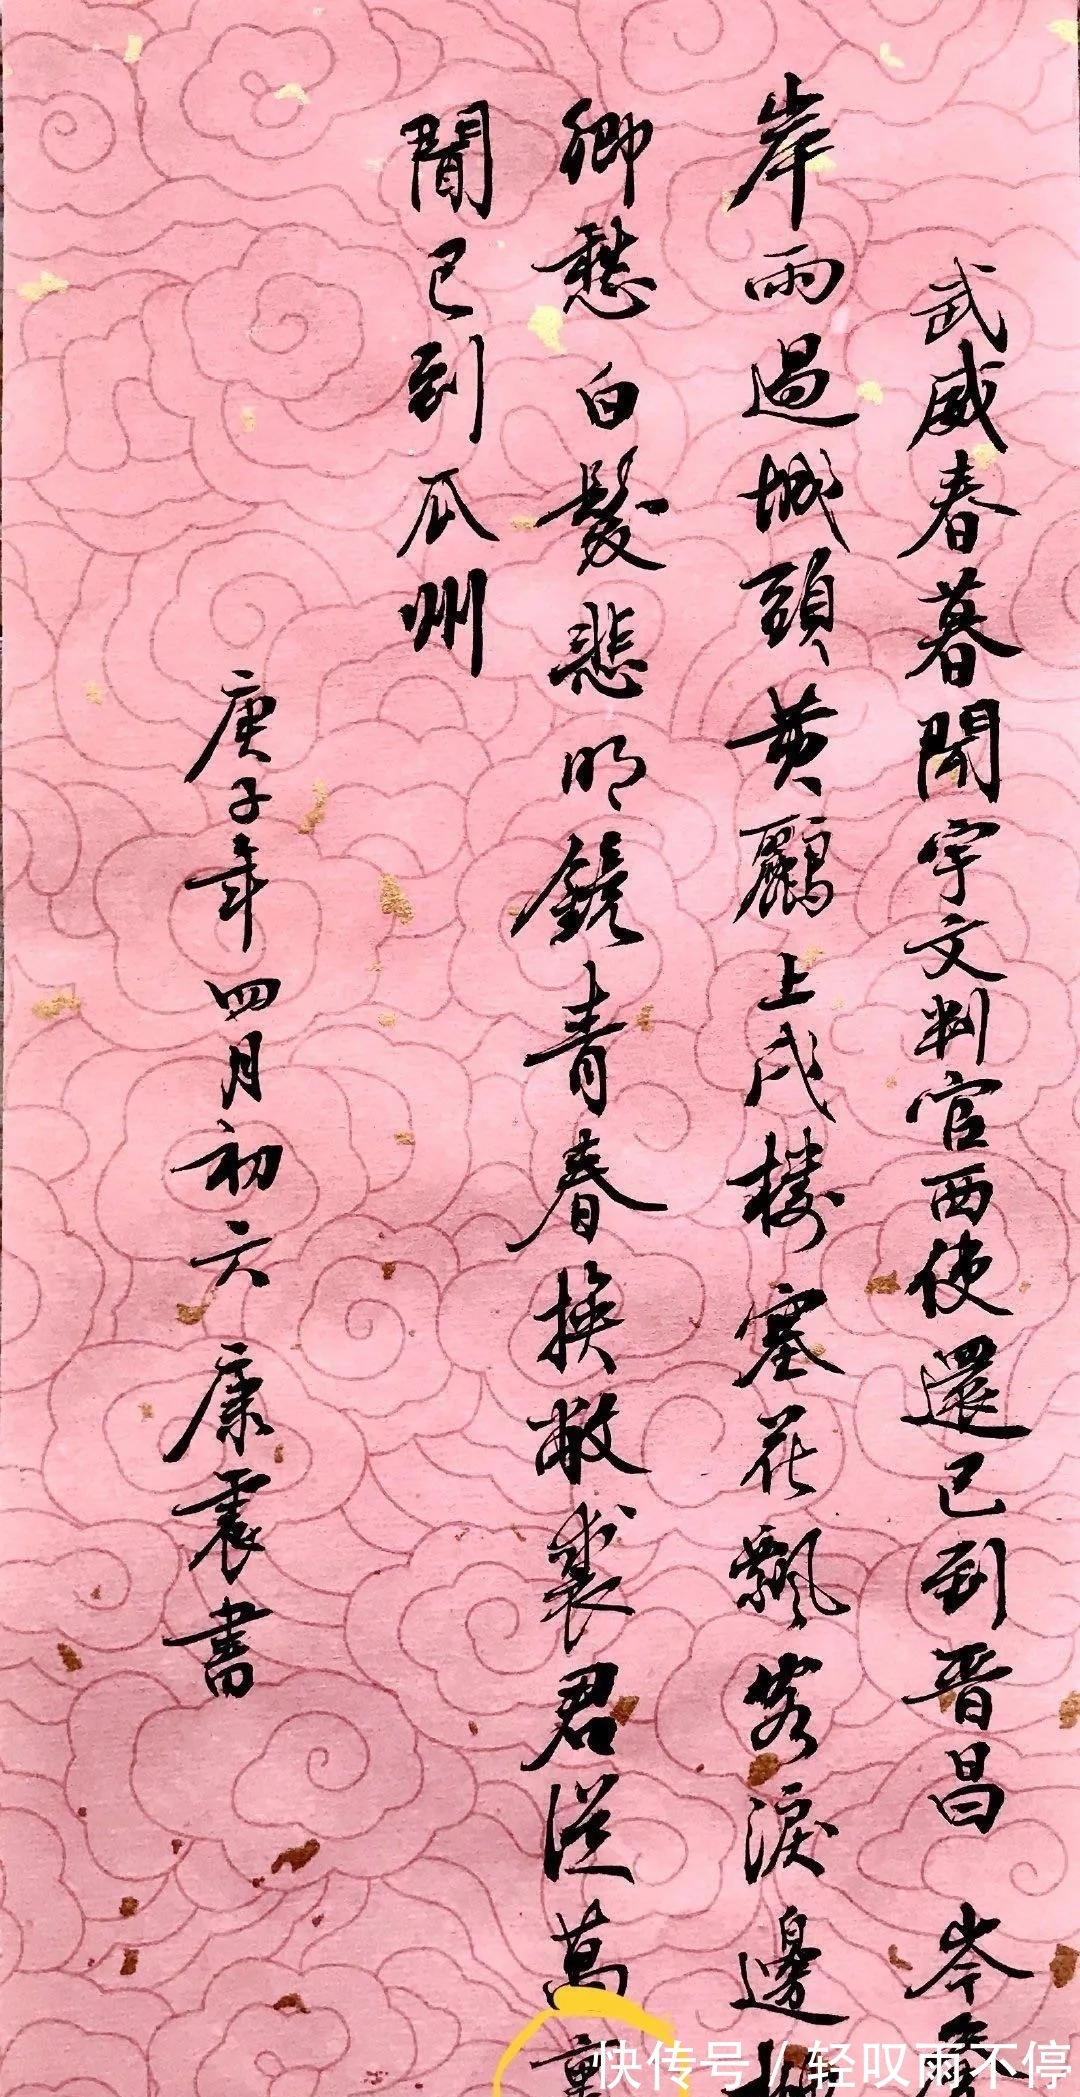 武威春暮聞宇文判官西使還已到晋昌 岑參
岸雨過城頭黄鸝上戍樓塞花飄客淚邊柳
鄉愁白髮悲明鏡青春換敝裘君從萬
聞已到瓜州
庚子年四月初六 康震書
快传号 / 轻叹雨不停